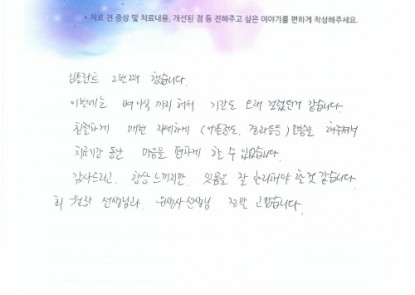 • 치료 전 증상 및 치료내용, 개선된 점 등 전해주고 싶은 이야기를 편하게 작성해주세요.
임플란트 2번째 했습니다.
이번에는 뼈이식 까지 해서 기간도 오래 걸렸던거 같습니다
친절하게 매번 자세하게 (아픈정도, 경과등등) 말씀을 해주셔서
치료기간 동안 마음을 편하게 할 수 있었습니다.
감사드리고, 항상 느끼지만, 잇몸을 잘 관리해야 할 것 같습니다.
선생님과, 위생사 선생님 정말 고맙습니다.